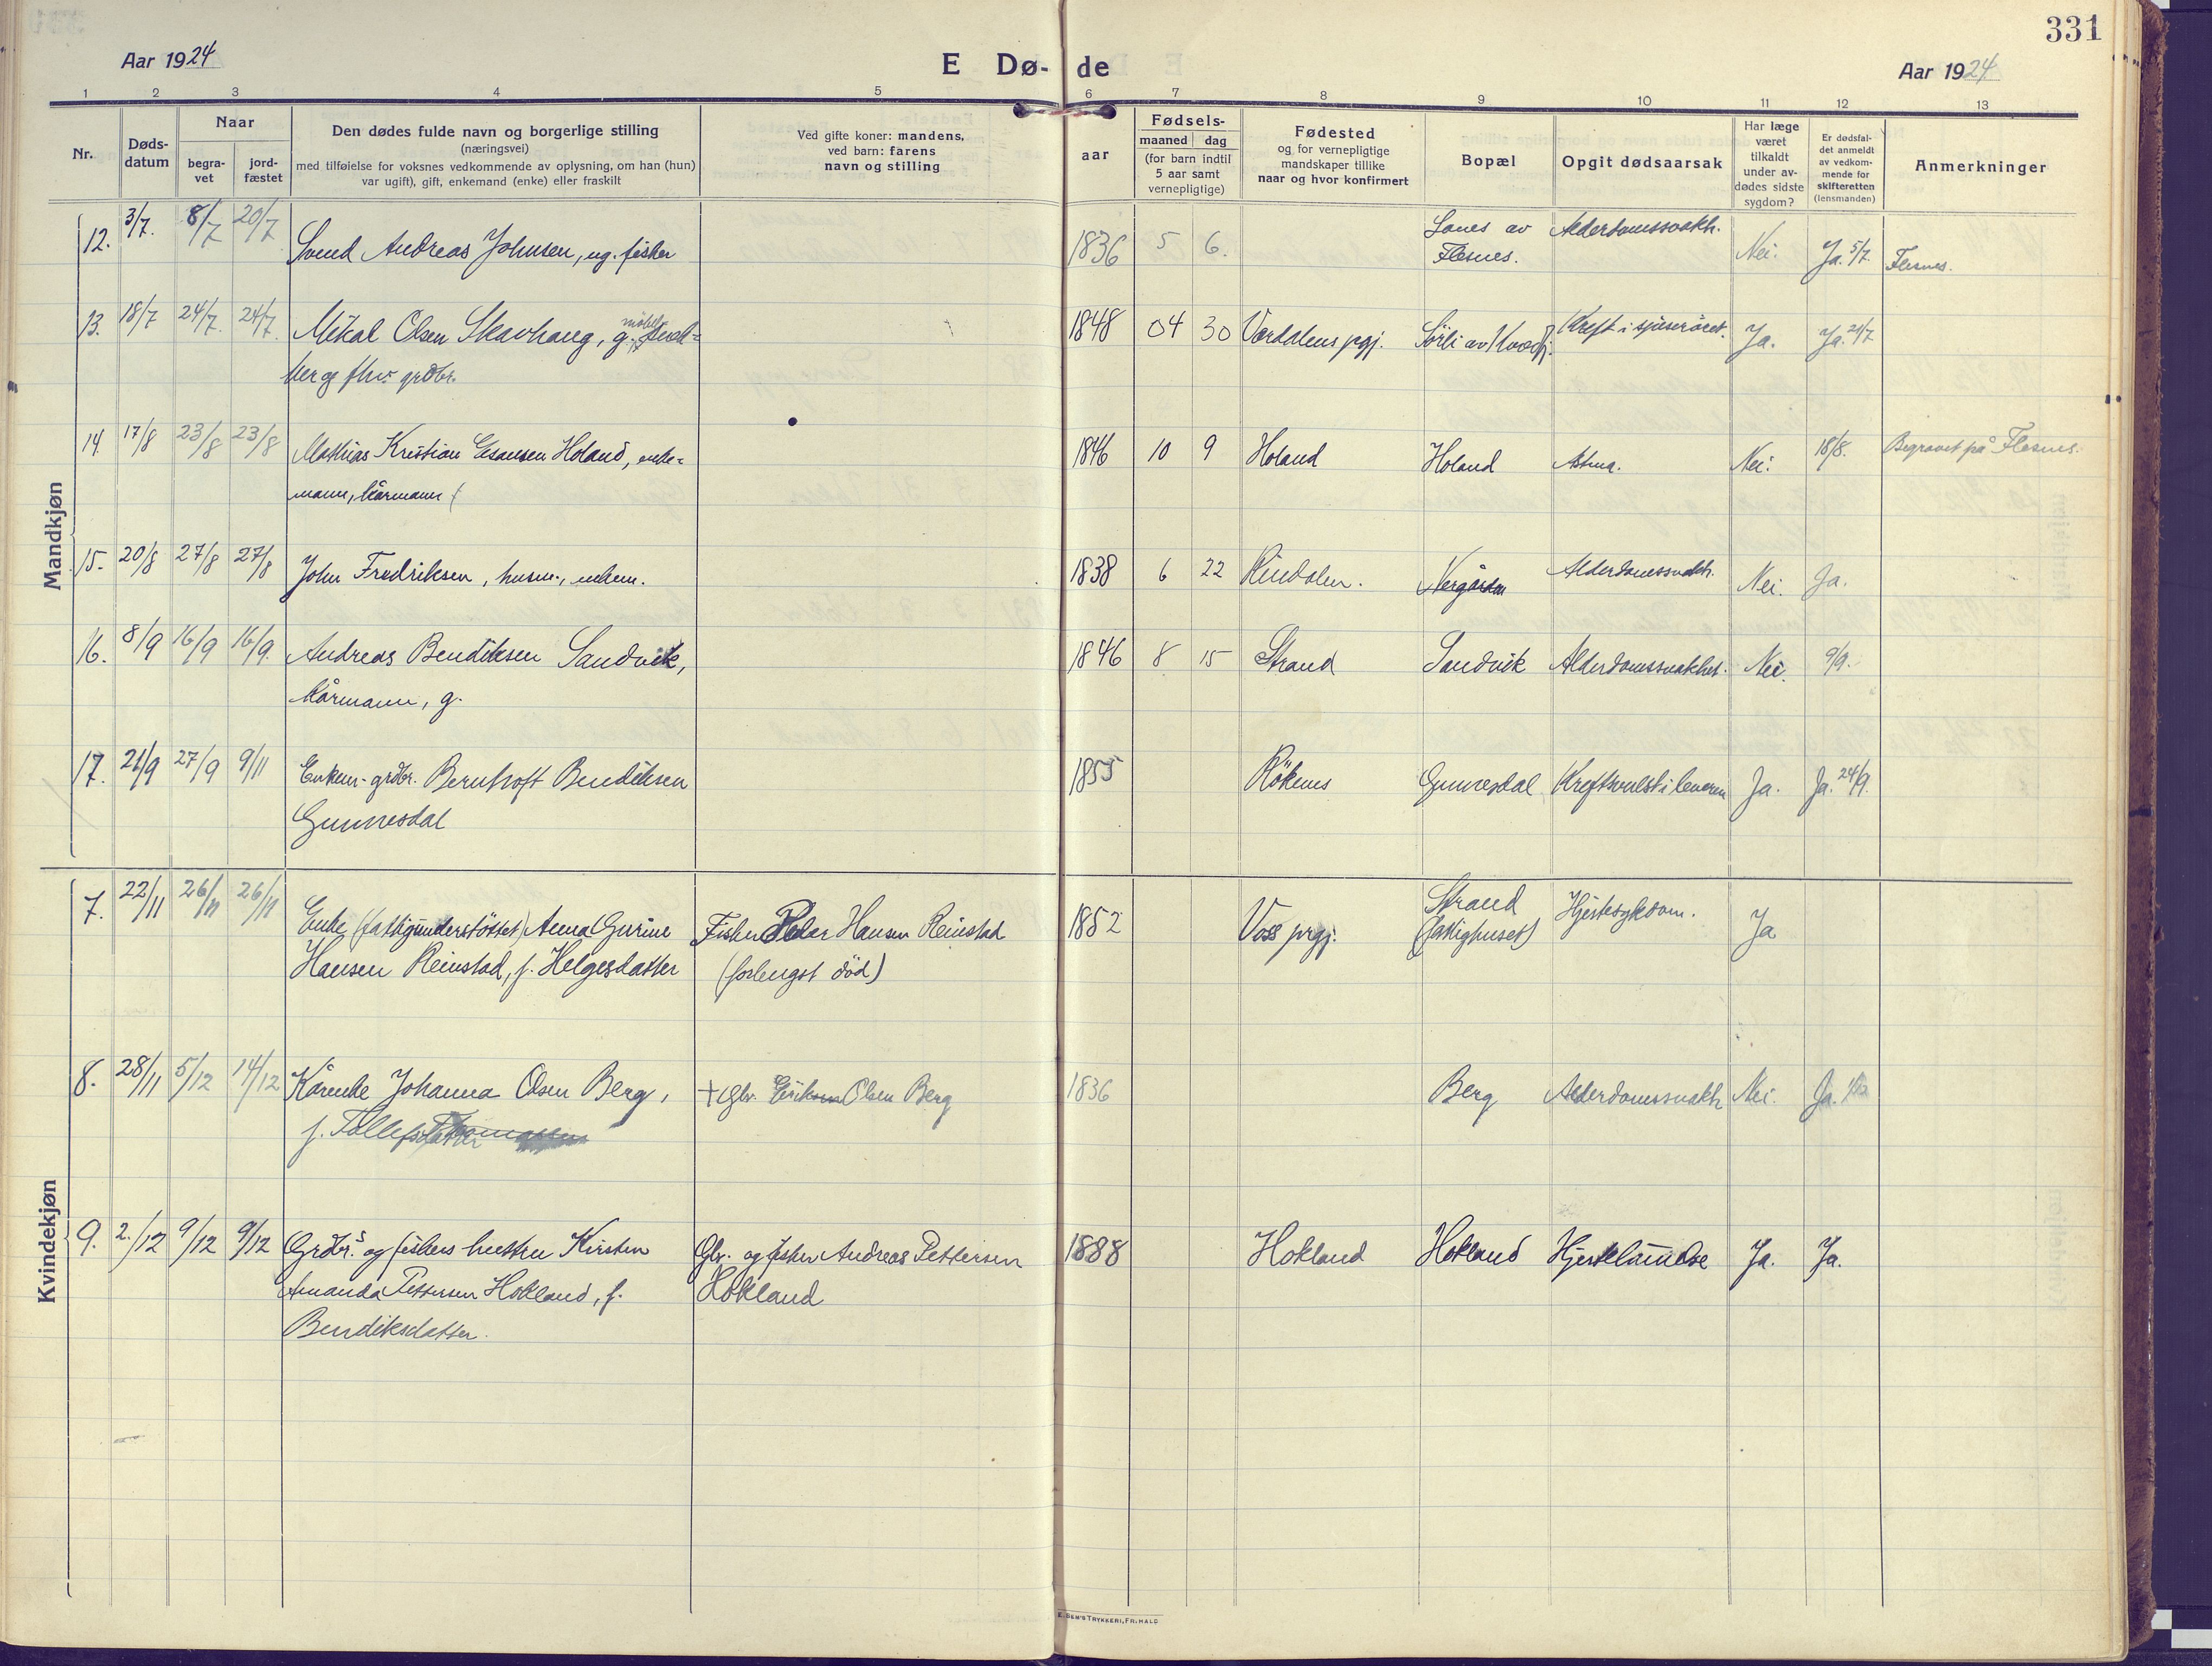 331
Aar 1924
E Dø-de
Aar 1924
1 2 3 4 5 6 7 8 9 10 11 12 13
Nr.
Døds-
datum
Naar
begra-
vet
jord-
fæstet
Den dødes fulde navn og borgerlige stilling
(næringsvei)
med tilføielse for voksnes vedkommende av oplysning, om han (hun)
var ugift), gift, enkemand (enke) eller fraskilt
Ved gifte koner: mandens,
ved barn: farens
navn og stilling
aar
Fødsels-
maaned dag
(for barn indtil
5 aar samt
vernepligtige)
Fødested
og for vernepligtige
mandskaper tillike
naar og hvor konfirmert
Bopæl
Opgit dødsaarsak
Har læge
været
tilkaldt
under av-
dødes sidste
sygdom?
Er dødsfal-
det anmeldt
av vedkom-
mende for
skifteretten
(lensmanden)
Anmerkninger
Mandkjøn
12. 3/7. 8/7 20/7 Svend Andreas Johnsen, ug. fisker 1836 5 6. Lanes av Alderdomssvakh. Nei. Ja. 5/7. Flesnes.
Flesnes.
13. 18/7 24/7. 24/7. Mikal Olsen Skavhaug, g. møbel- 1848 04 30 Værdalens prgj. Sørli av Kreft i spiserøret. Ja. Ja. 21/7
fhv. grdbr.
14. 17/8 23/8 23/8 Mathias Kristian Esausen Holand, enke= 1846 10 9 Holand Holand Astma. Nei. 18/8. Begravet på Flesnes.
mann, kårmann
15. 20/8 27/8 27/8 John Fredriksen, husm., enkem. 1838 6 22 Rindalen. Nergården Alderdomssvakh. Nei. Ja.
16. 8/9 16/9 16/9. Andreas Bendiksen Sandvik, 1846 8 15 Strand Sandvik Alderdomssvakhet. Nei. 9/9.
kårmann, g.
17. 21/9 27/9 9/11 Enkem. grdbr. Bernhoft Bendiksen 1855 Røkenes Gunnesdal Kreftsvulst i leveren Ja. Ja. 24/9.
Gunnesdal
Kvindekjøn
7. 22/11 26/11 26/11 Enke (fattigunderstøttet) Anna Gurine Fisker Peder Hansen Reinstad 1852 Voss prgj. Strand Hjertesykdom. Ja
Hansen Reinstad, f. Helgesdatter (forlengst død) (fattighuset)
8. 28/11 5/12 14/12 Kårenke Johanna Olsen Berg, + gbr. Erik Olsen Berg 1836 Berg Alderdomssvakh Nei. Ja.
f. Tollefsdatter
9. 2./12 9/12 9/12 Grdbr.s og fiskers hustru Kirsten Gbr. og fisker Andreas Pettersen 1888 Hokland Hokland Hjertelammelse Ja. Ja.
Amanda Pettersen Hokland, f. Hokland
Bendiksdatter.
E. SEM'S TRYKKERI, FR.HALD